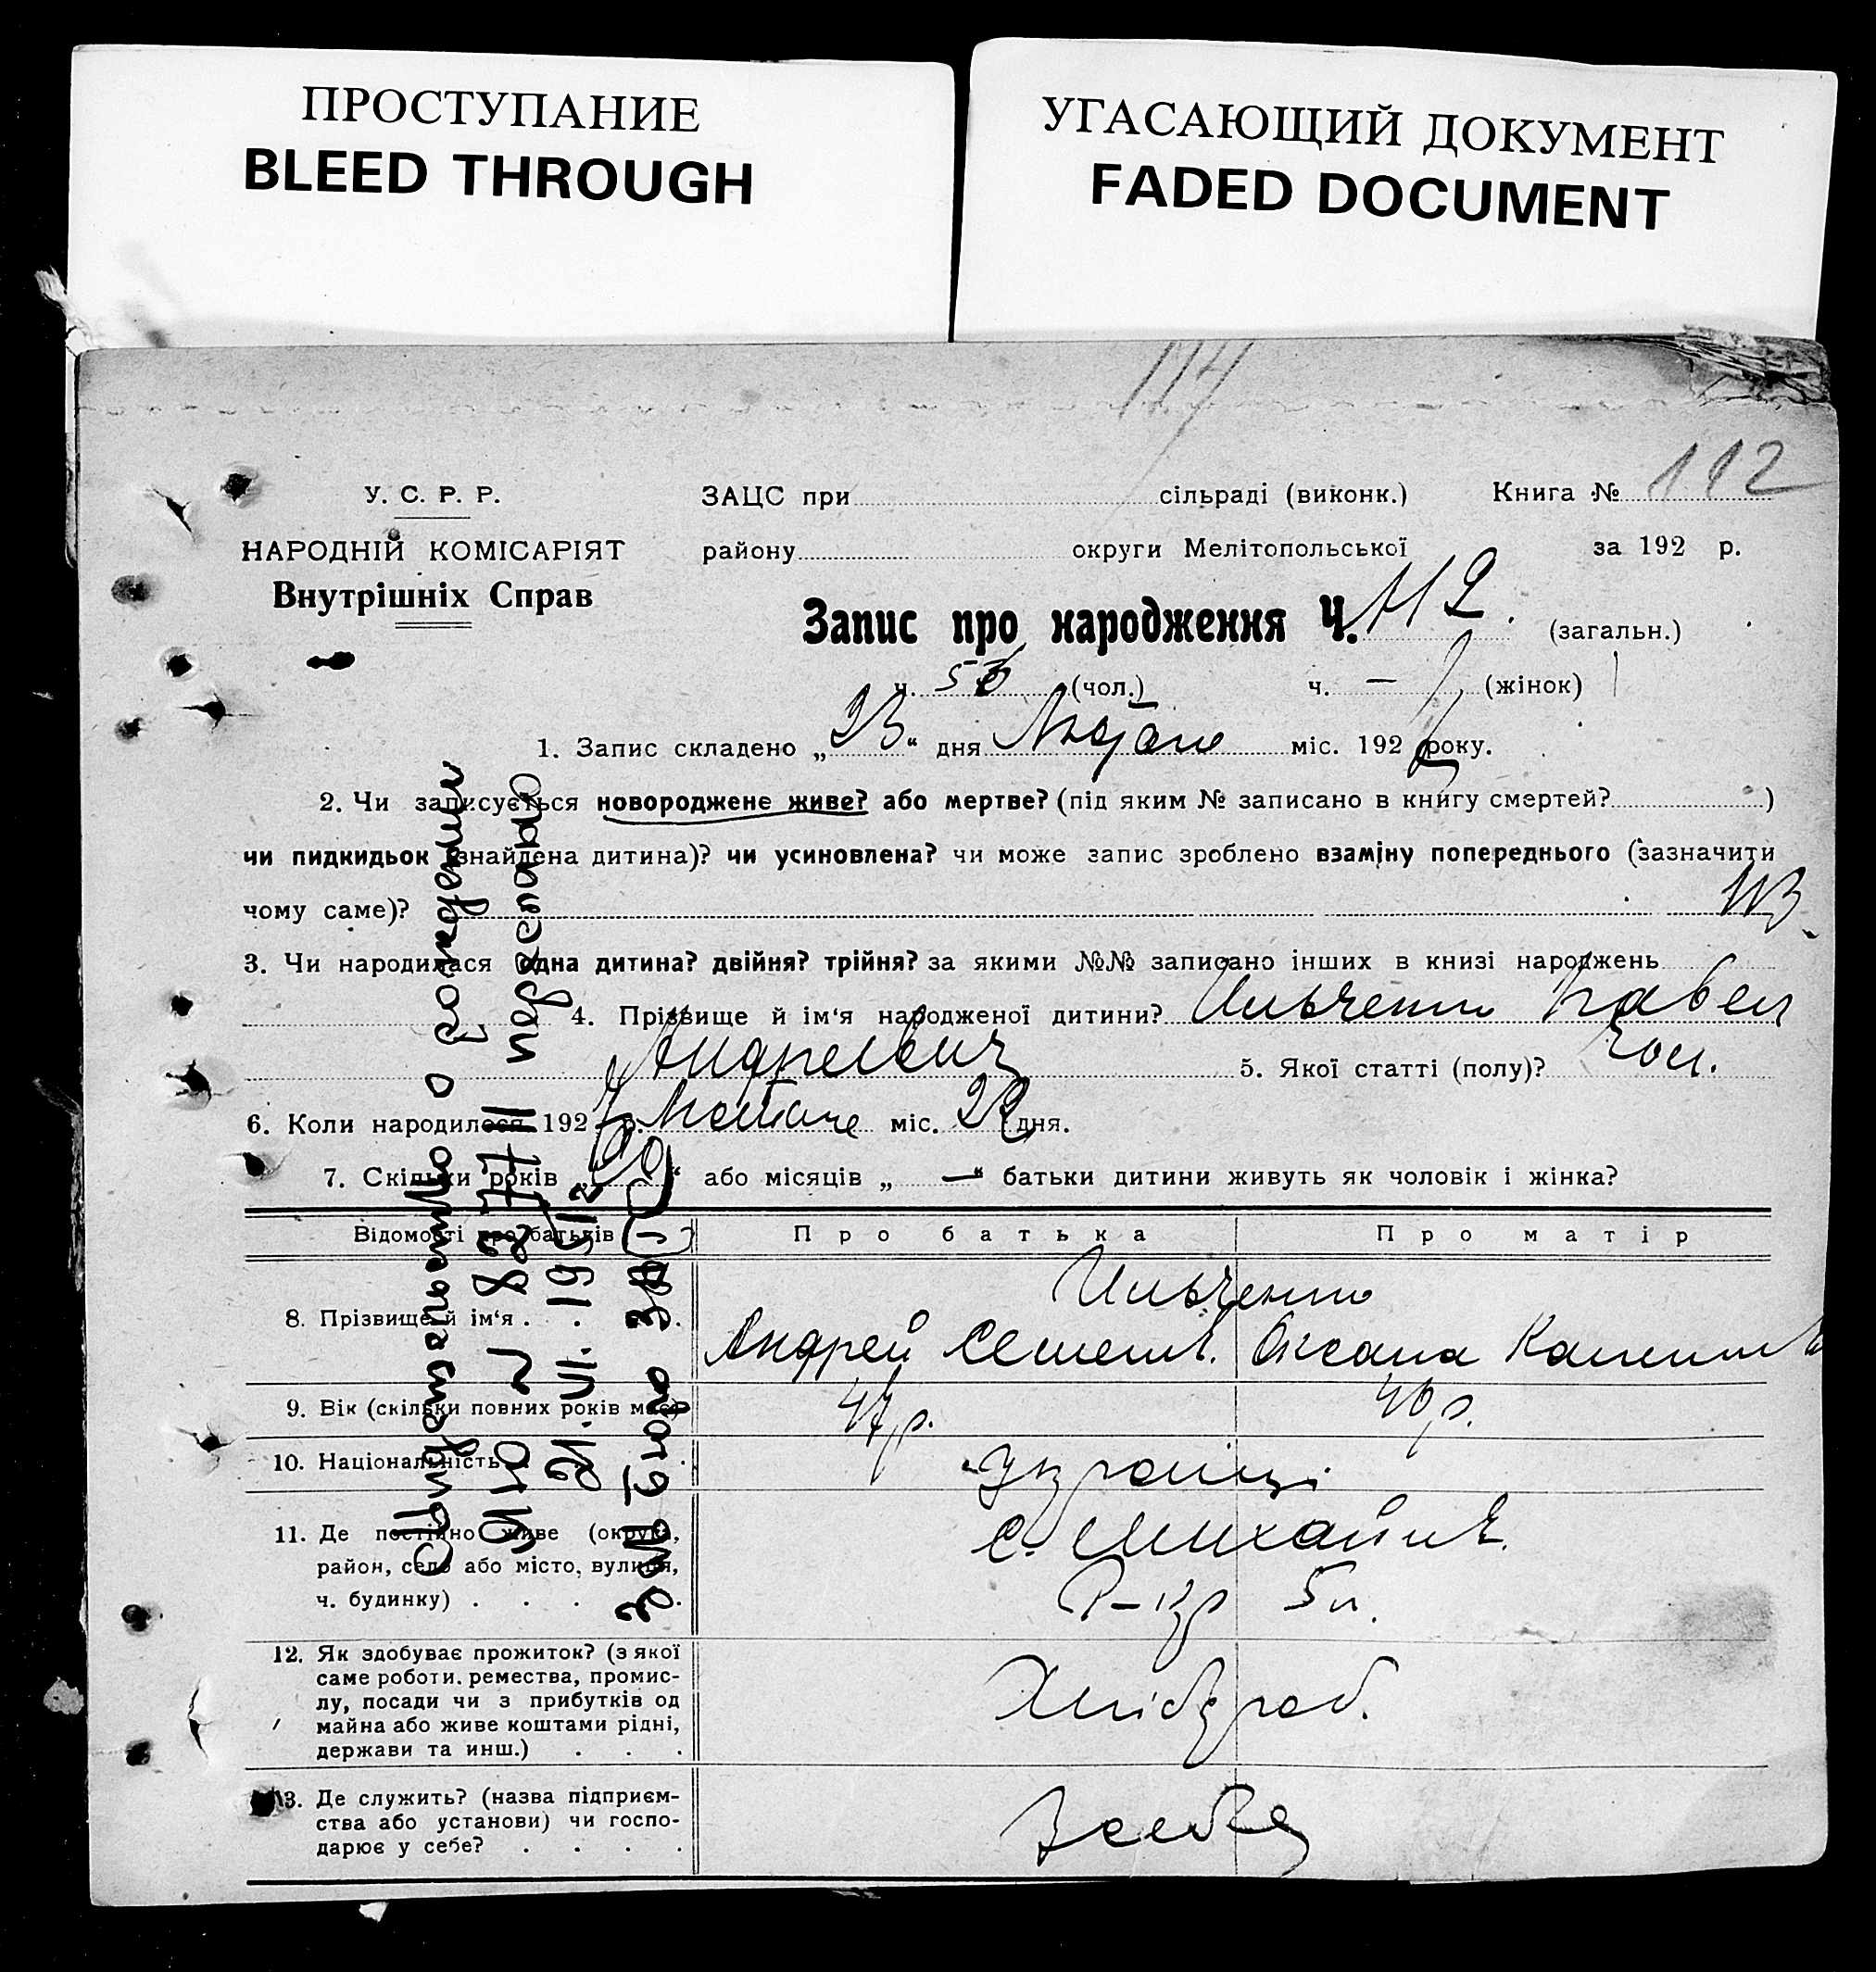 ПРОСТУПАНИЕ
BLEED THROUGH
УГАСАЮЩИЙ ДОКУМЕНТ
FADED DOCUMENT
114
У. С. Р. Р.
НАРОДНІЙ КОМІСАРІЯТ
Внутрішніх Справ
ЗАЦС при сільраді (виконк.) Книга № 112
району округи Мелітопольської за 192 р.
Запис про народження Ч. 112. (загальн.)
ч. 56 (чол.) ч. — (жінок)
1. Запис складено „23“ дня міс. 192 року.
2. Чи записується новороджене живе? або мертве? (під яким № записано в книгу смертей? )
чи пидкидьок (знайдена дитина)? чи усиновлена? чи може запис зроблено взаміну попереднього (зазначити
чому саме)?
113
3. Чи народилася одна дитина? двійня? трійня? за якими №№ записано інших в книзі народжень
4. Прізвище й ім'я народженої дитини? Ильченко Павел
Андреевич 5. Якої статті (полу)? чол.
6. Коли народилося 192 р. міс. 22 дня.
7. Скільки років „20“ або місяців „—“ батьки дитини живуть як чоловік і жінка?
Відомості про батьків Про батька Про матір
Ильченко
8. Прізвище й ім'я . . . Андрей Семен. Оксана
9. Вік (скільки повних років має) 47 р. 40 р.
10. Національність українці
11. Де постійно живе (округа,
район, село або місто, вулиця,
ч. будинку) . . . .
с. Михайл.
5 п.
12. Як здобуває прожиток? (з якої
саме роботи. ремества, промис-
лу, посади чи з прибутків од
майна або живе коштами рідні,
держави та инш.) . . .
Хлібороб.
13. Де служить? (назва підприєм-
ства або установи) чи госпо-
дарює у себе? . . . .
У себе
Свидетельство о рождении
ЯЮ № 827711 передано
21.VI.1951г
ЗАГС